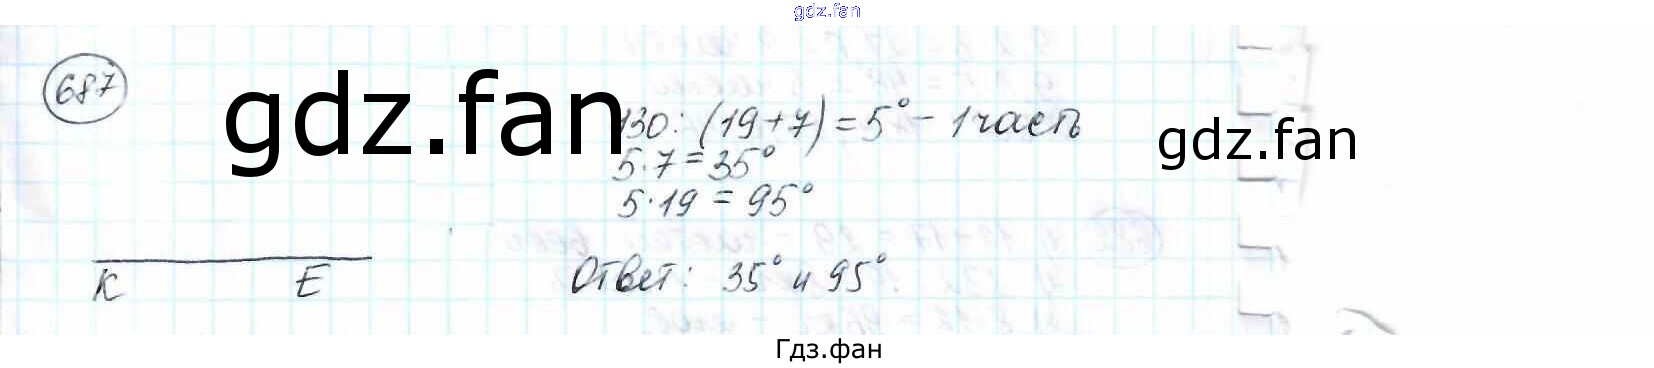 gdz.fan
687
gdz.fan
130 : (19 + 7) = 5° - 1 часть
gdz.fan
5 · 7 = 35°
5 · 19 = 95°
K E
Ответ: 35° и 95°
Гдз.фан